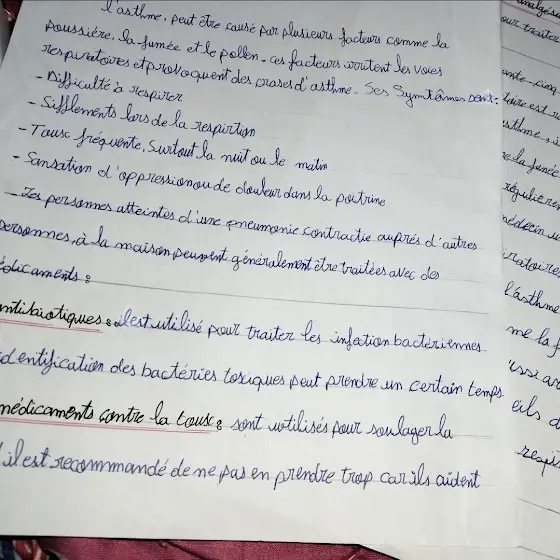 l'asthme, peut être causé par plusieurs facteurs comme la
poussière, la fumée et le pollen. ces facteurs irritent les voies
respiratoires et provoquent des crases d'asthme. Ses Symtômes sont:
- Difficulté à respirer
- Sifflements lors de la respirtion
- Toux fréquente, Surtout la nuit ou le matin
- Sansation d'oppression ou de douleur dans la poitrine
- Les personnes atteintes d'une pneumonie contractie auprés d'autres
personnes, à la maison peuvent généralement être traitées avec des
édicaments:
ntibiotiques: ilest utilisé pour traiter les infection bactériennes
dentification des bactéries toxiques peut prendre un certain temps.
médicaments contre la toux: sont utilisés pour soulager la
ilest recommandé de ne pas en prendre trop car ils aident
analgési
our traiter
ante-cinq
asthme, i
e la fumée
régulière
médecin u
iratoire
l'asthme
me la f
ils d
respi